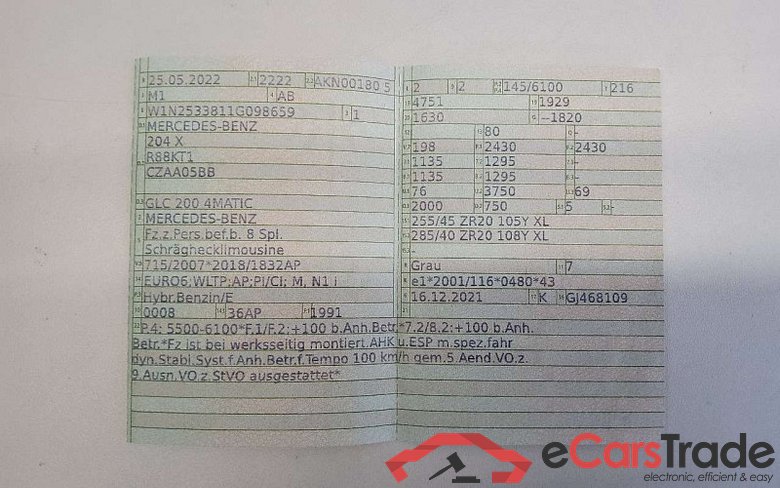 25.05.2022 2222 AKN00180 5
M1 AB
W1N2533811G098659 1
MERCEDES-BENZ
204 X
R88KT1
CZAA05BB
GLC 200 4MATIC
MERCEDES-BENZ
Fz.z.Pers.bef.b. 8 Spl.
Schräghecklimousine
715/2007*2018/1832AP
EURO6;WLTP;AP;PI/CI; M, N1 i
Hybr.Benzin/E
0008 36AP 1991
2 2 145/6100 216
4751 1929
1630 --1820
80 -
198 2430 2430
1135 1295 -
1135 1295 -
76 3750 69
2000 750 5 -
255/45 ZR20 105Y XL
285/40 ZR20 108Y XL
Grau 7
e1*2001/116*0480*43
16.12.2021 K GJ468109
P.4: 5500-6100*F.1/F.2:+100 b.Anh.Betr.*7.2/8.2:+100 b.Anh.
Betr.*Fz ist bei werksseitig montiert.AHK u.ESP m.spez.fahr
dyn.Stabi.Syst.f.Anh.Betr.f.Tempo 100 km/h gem.5.Aend.VO.z.
9.Ausn.VO.z.StVO ausgestattet*
eCarsTrade
electronic, efficient & easy